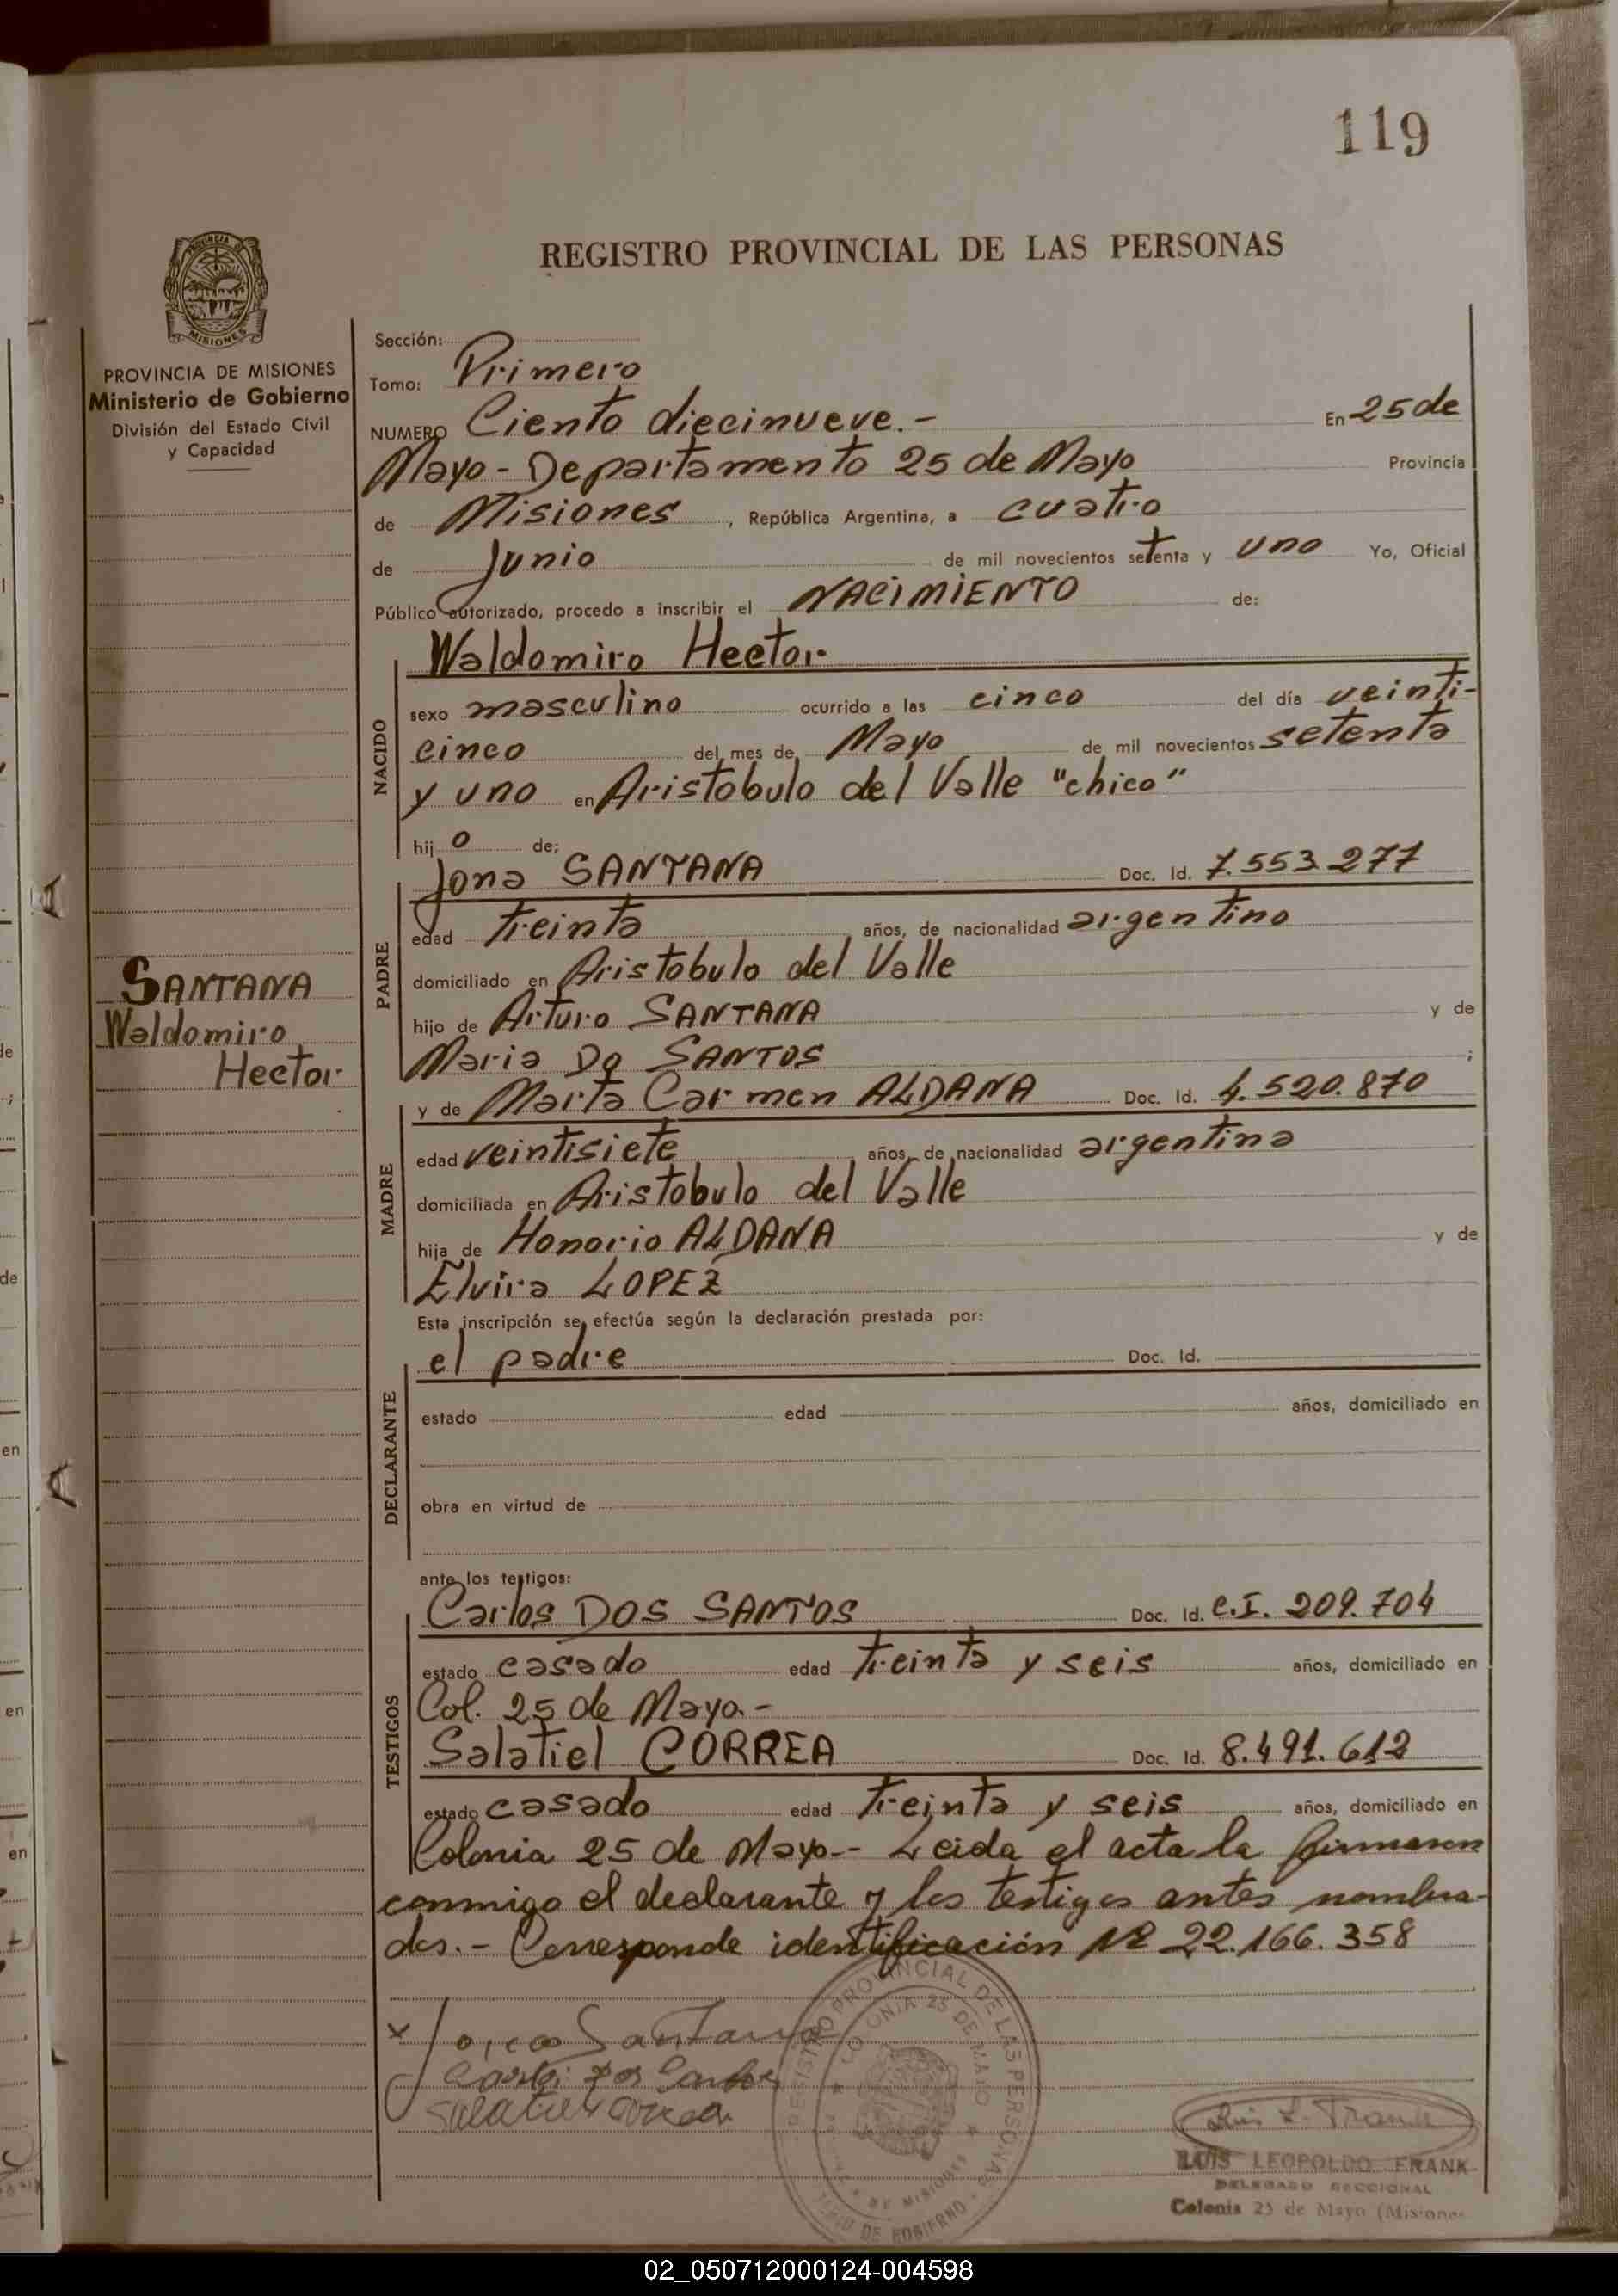 119
REGISTRO PROVINCIAL DE LAS PERSONAS
PROVINCIA DE
MISIONES
PROVINCIA DE MISIONES
Ministerio de Gobierno
División del Estado Civil
y Capacidad
SANTANA
Waldomiro
Hector
Sección:
Tomo: Primero
NUMERO Ciento diecinueve.- En 25 de
Mayo - Departamento 25 de Mayo Provincia
de Misiones, República Argentina, a cuatro
de Junio de mil novecientos setenta y uno Yo, Oficial
Público autorizado, procedo a inscribir el NACIMIENTO de:
NACIDO
Waldomiro Hector
sexo masculino ocurrido a las cinco del día veinti-
cinco del mes de Mayo de mil novecientos setenta
y uno en Aristobulo del Valle "chico"
hij o de;
PADRE
Jona SANTANA Doc. Id. 7.553.277
edad treinta años, de nacionalidad argentino
domiciliado en Aristobulo del Valle
hijo de Arturo SANTANA y de
Maria Do SANTOS ;
MADRE
y de Marta Carmen ALDANA Doc. Id. 4.520.870
edad veintisiete años, de nacionalidad argentina
domiciliada en Aristobulo del Valle
hija de Honorio ALDANA y de
Elvira LOPEZ
Esta inscripción se efectúa según la declaración prestada por:
DECLARANTE
el padre Doc. Id.
estado edad años, domiciliado en
obra en virtud de
ante los testigos:
TESTIGOS
Carlos DOS SANTOS Doc. Id. C.I. 209.704
estado casado edad treinta y seis años, domiciliado en
Col. 25 de Mayo.-
Salatiel CORREA Doc. Id. 8.491.612
estado casado edad treinta y seis años, domiciliado en
Colonia 25 de Mayo.- Leida el acta la firmaron
conmigo el declarante y los testigos antes nombra-
dos.- Corresponde identificación Nº 22.166.358
x Santana
Carlos Dos Santos
Salatiel Correa
REGISTRO PROVINCIAL DE LAS PERSONAS
COLONIA 25 DE MAYO
DE MISIONES
DE GOBIERNO
Luis L. Frank
LUIS LEOPOLDO FRANK
DELEGADO SECCIONAL
Colonia 25 de Mayo (Misiones
02_050712000124-004598